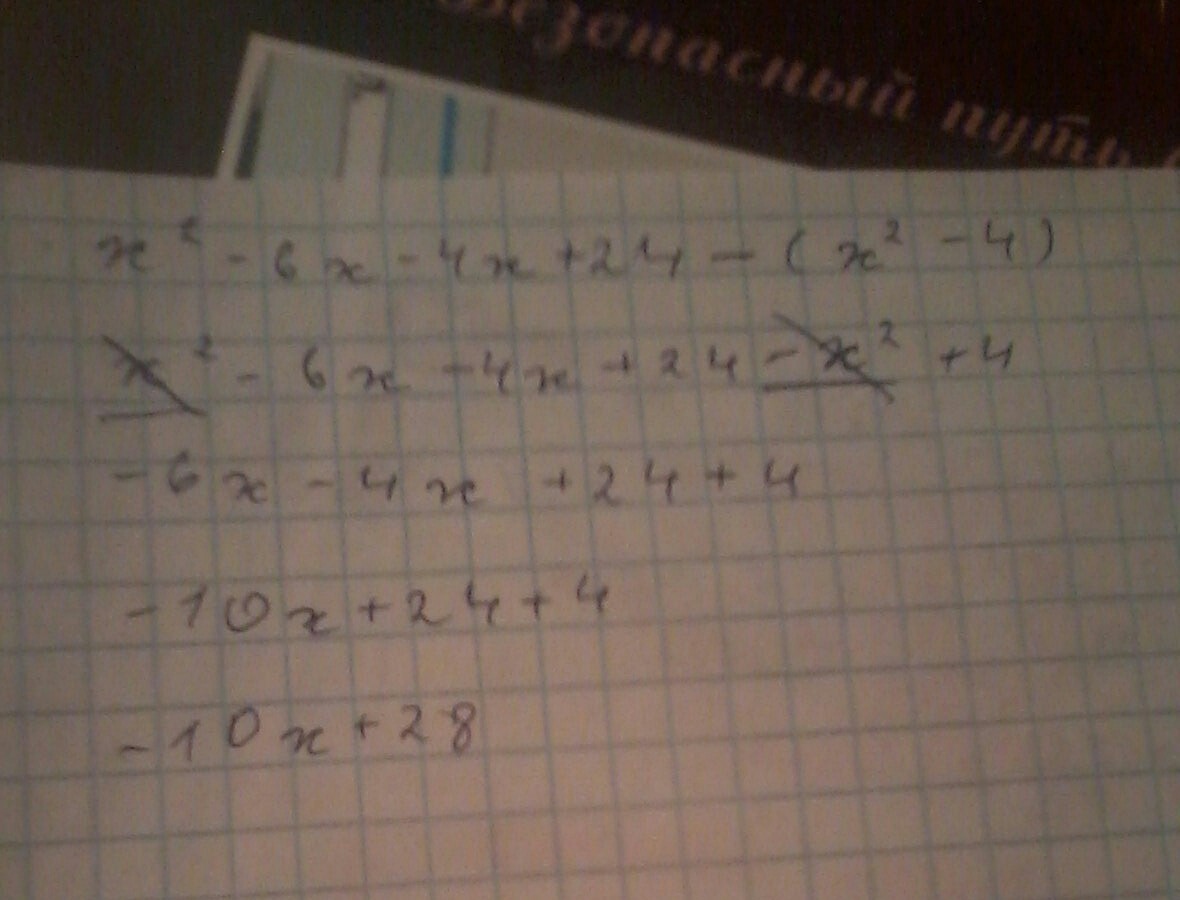 Безопасный путь
x² - 6x - 4x + 24 - (x² - 4)
x² - 6x - 4x + 24 - x² + 4
- 6x - 4x + 24 + 4
- 10x + 24 + 4
- 10x + 28